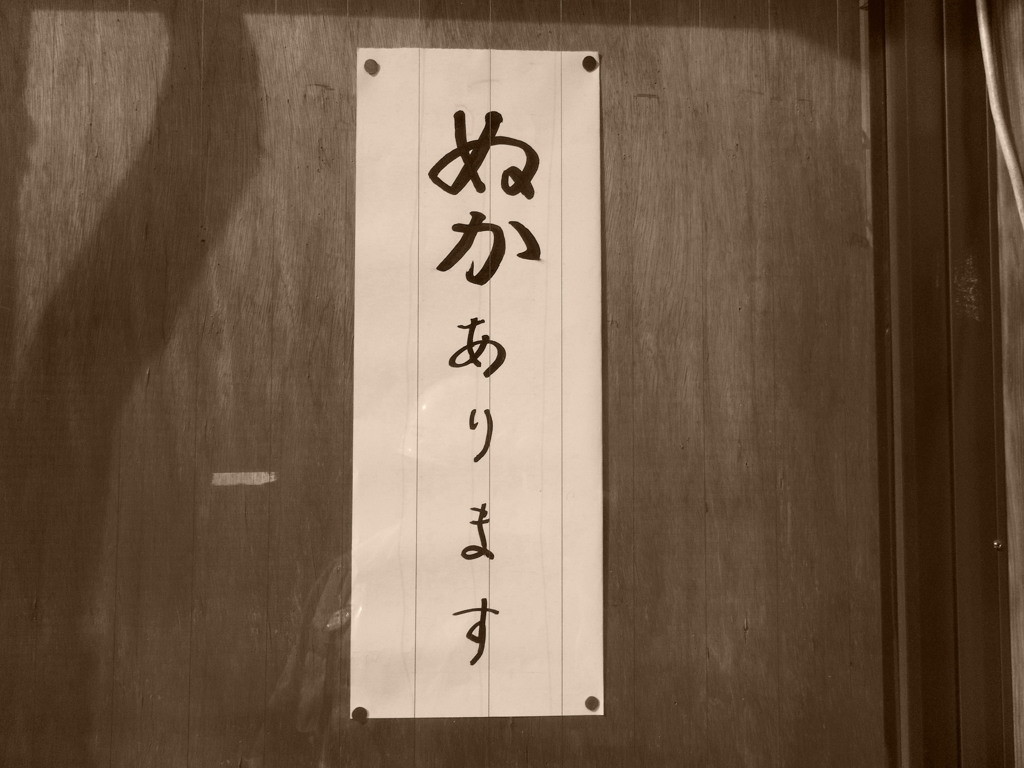 ぬかあります